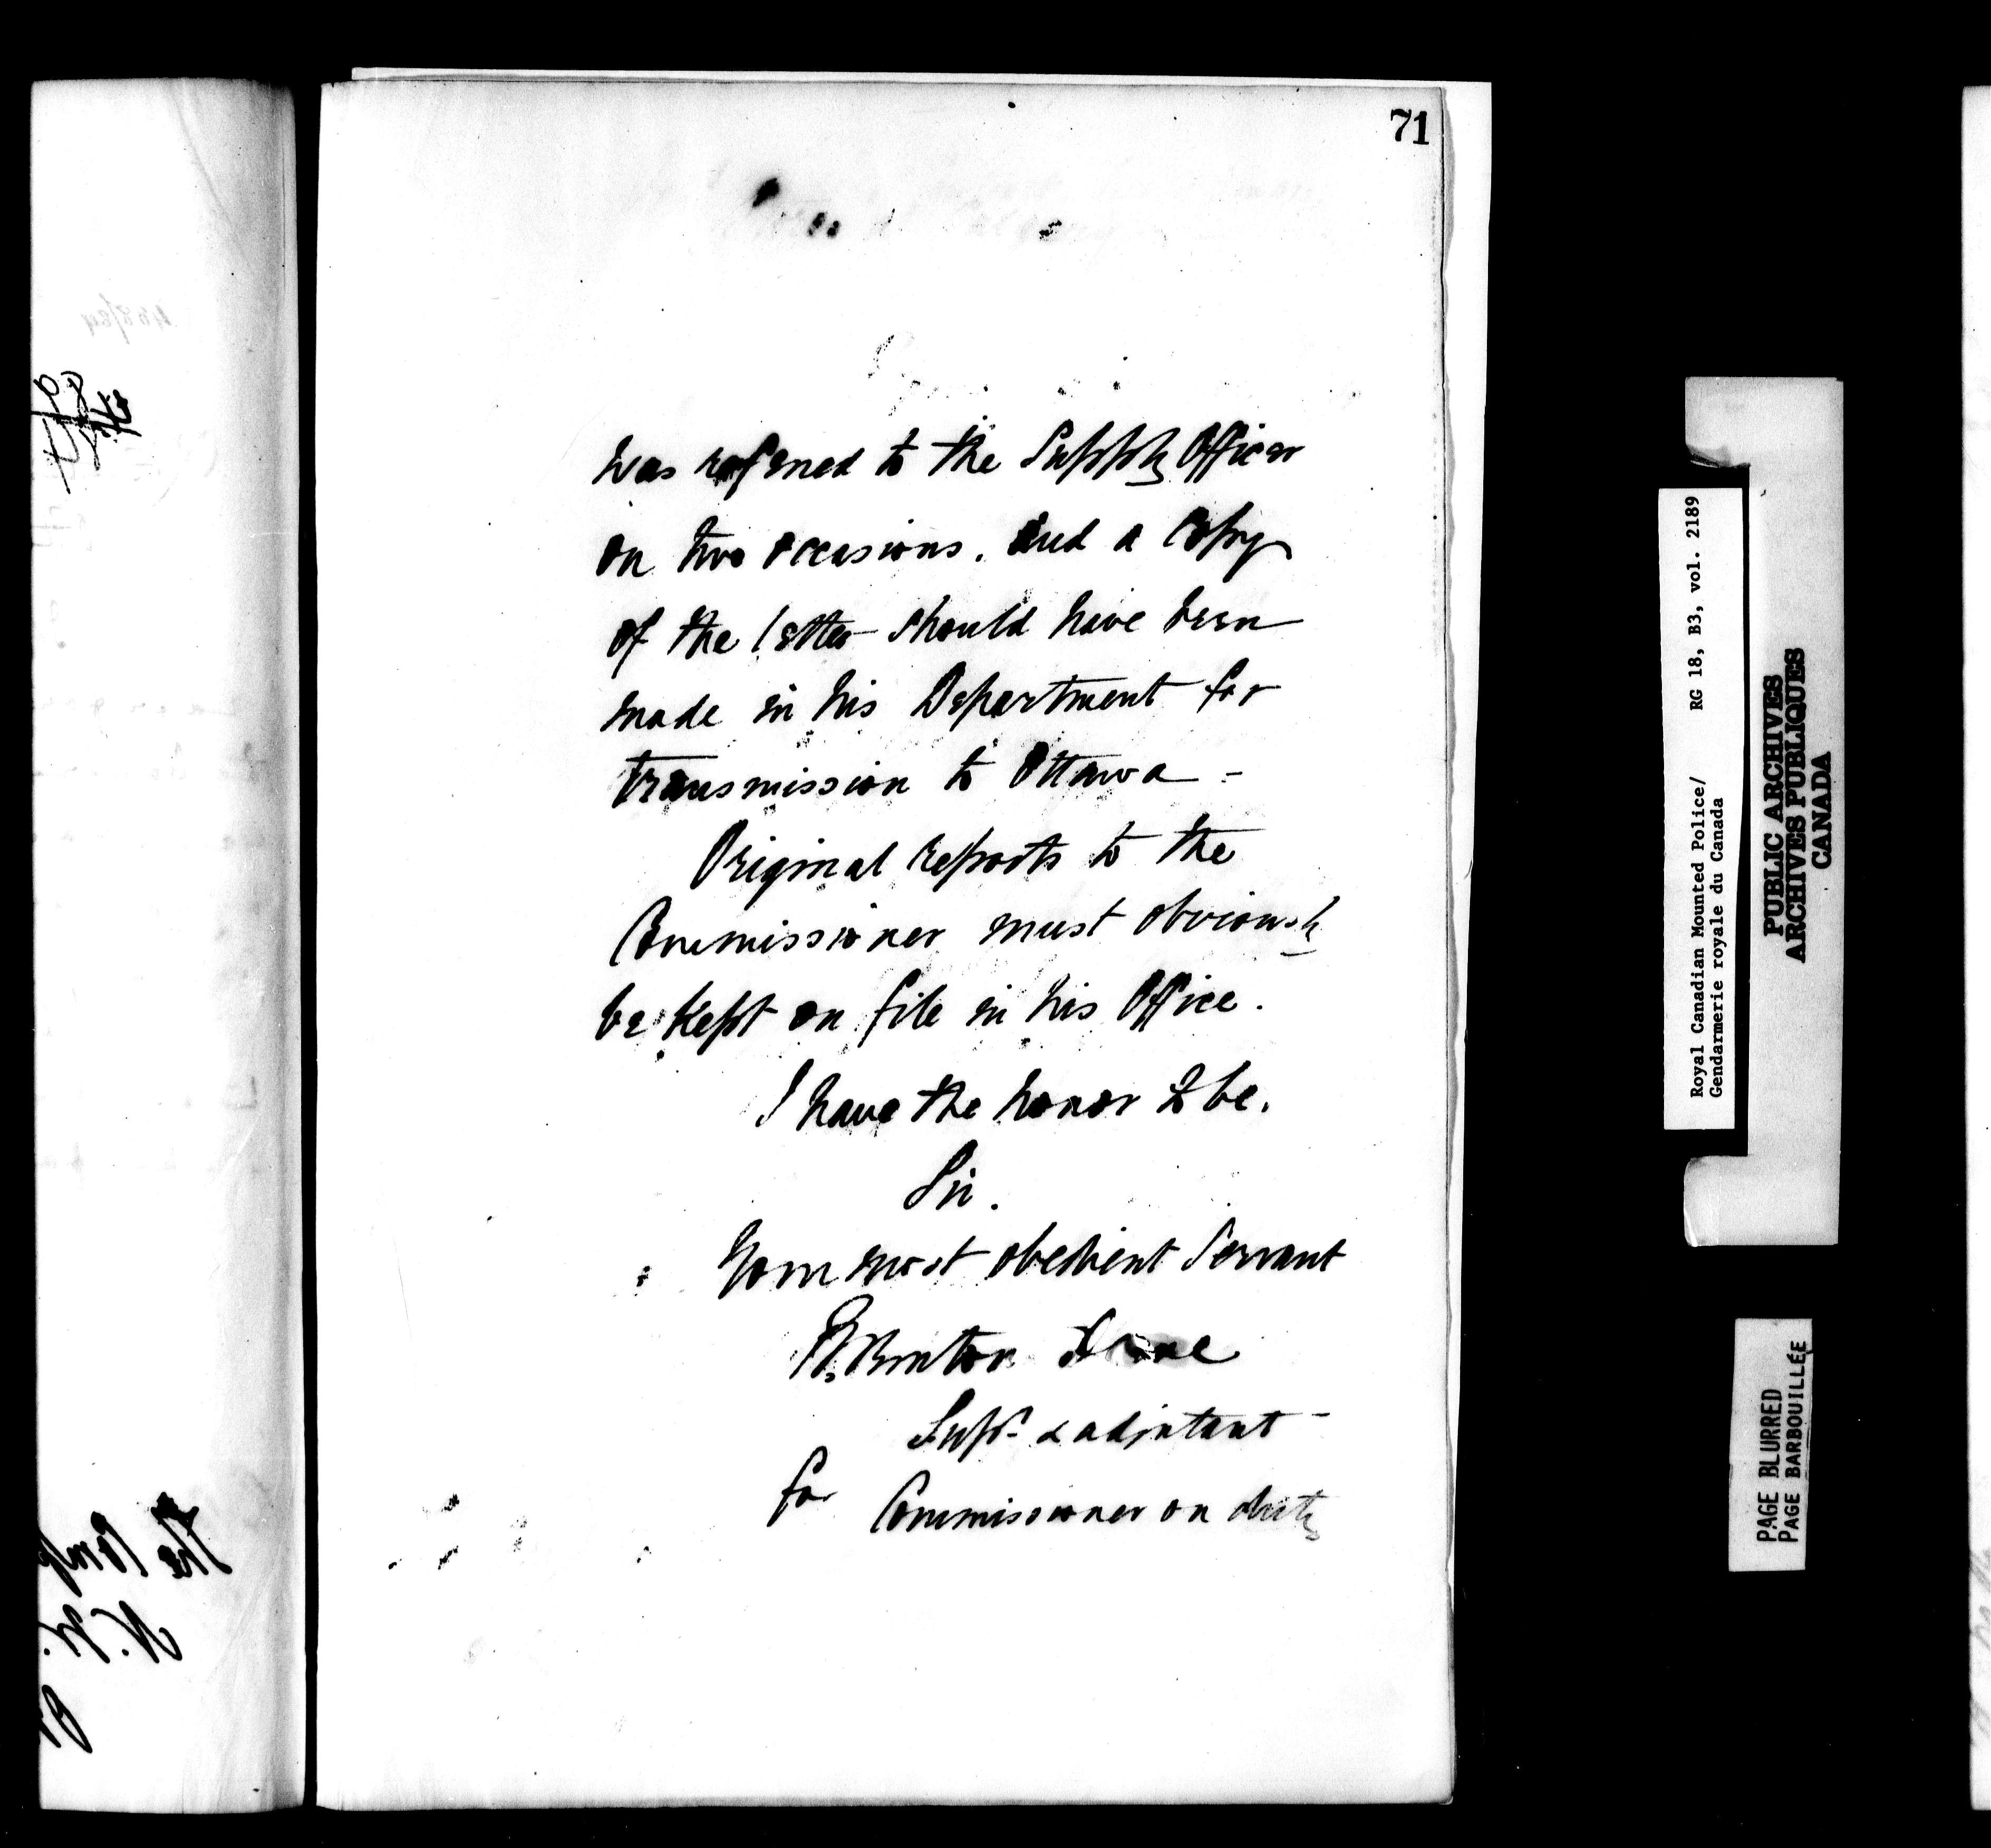 71
was referred to the Supply Officer
on two occasions. And a Copy
of the letter should have been
made in his Department for
transmission to Ottawa -
Original reports to the
Commissioner must obviously
be kept on file in his Office.
I have the honor to be.
Sir.
Your most obedient Servant
R. Burton Deane
Supt. & adjutant
for Commissioner on duty
Royal Canadian Mounted Police/ RG 18, B3, vol. 2189
Gendarmerie royale du Canada
PUBLIC ARCHIVES
ARCHIVES PUBLIQUES
CANADA
PAGE BLURRED
PAGE BARBOUILLÉE